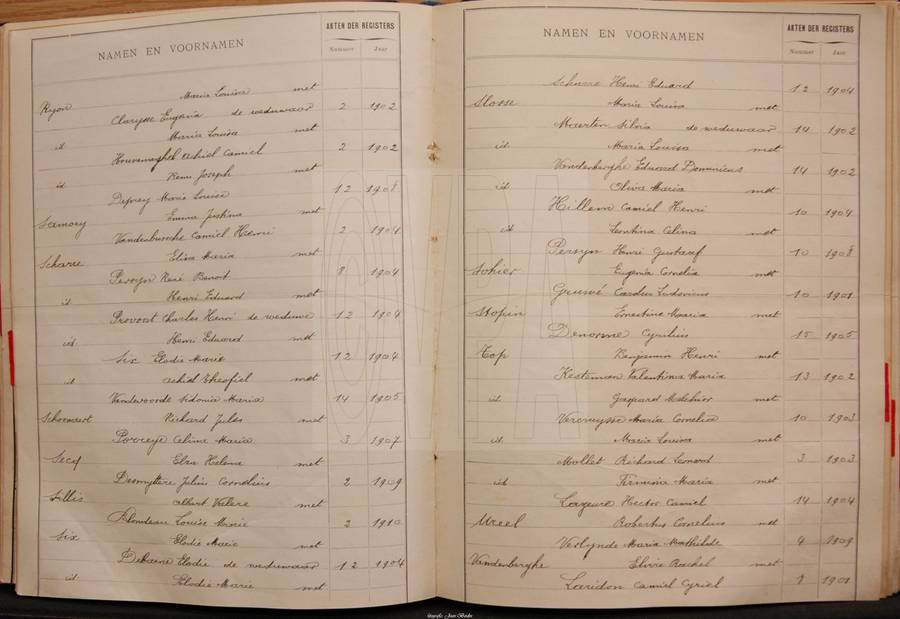 NAMEN EN VOORNAMEN AKTEN DER REGISTERS
Nummer Jaar
Ryon Maria Louisa met
Clarysse Eugenia de weduwaar 2 1902
id Maria Louisa met
Houvenaghel Achiel Camiel 2 1902
id Remi Joseph met
Deprey Marie Louise 12 1908
Samory Emma Justina met
Vandenbussche Camiel Henri 2 1904
Scharre Elisa Maria met
Persyn René Benoit 8 1904
id Henri Eduard met
Provoost Charles Henri de weduwe 12 1904
id Henri Eduard met
Six Elodie Marie 12 1904
id Achiel Theofiel met
Vandevoorde Sidonia Maria 14 1905
Schoenaert Richard Jules met
Porreye Celina Maria 3 1907
Secq Elza Helena met
Desmyttere Julius Cornelius 2 1909
Sillis Albert Valere met
Blondeau Louise Marie 2 1910
Six Elodie Marie met
Debaene Elodie de weduwaar 12 1904
id Elodie Marie met
NAMEN EN VOORNAMEN AKTEN DER REGISTERS
Nummer Jaar
Henri Eduard 12 1904
Slosse Maria Louisa met
Maerten Silvia de weduwaar 14 1902
id Maria Louisa met
Vandenburghe Eduard Dominicus 14 1902
id Oliva Maria met
Hillem Camiel Henri 10 1904
id Leontina Celina met
Persyn Henri Gustaaf 10 1908
Sohier Eugenia Cornelia met
Gruwé Carolus Ludovicus 10 1901
Stopin Ernestina Maria met
Denorme Cyrilius 15 1905
Top Benjamin Henri met
Kesteman Valentina Maria 13 1902
id Gaspard Melchior met
Vereruysse Maria Cornelia 10 1903
id Maria Louisa met
Mollet Richard Leonard 3 1903
id Firminia Maria met
Hector Camiel 14 1904
Ureel Robertus Cornelius met
Verlynde Maria Mathilde 4 1909
Vandenburghe Elvire Rachel met
Laridon Camiel Cyriel 8 1901